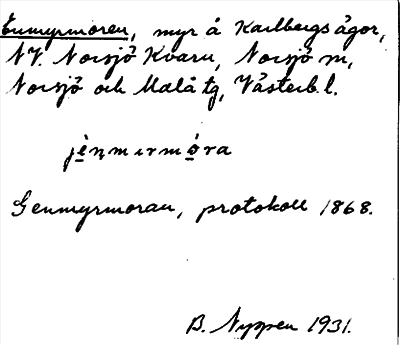 Enmyrmoren, myr å Karlbergs ägor,
NV. Norsjö Kvarn, Norsjö sn,
Norsjö och Malå tg, Västerb. l.
jènmırmóra
Genmyrmoran, protokoll 1868.
B. Nyppen 1931.